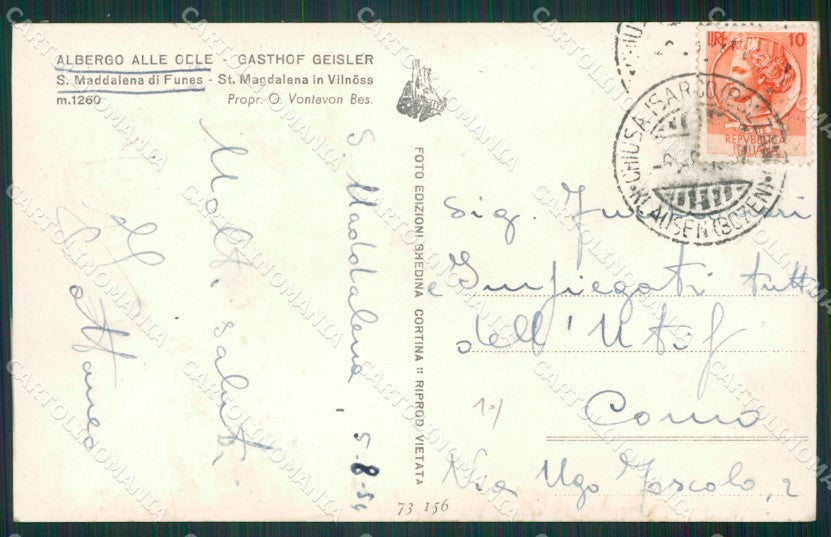 ALBERGO ALLE ODLE - GASTHOF GEISLER
S. Maddalena di Funes - St. Magdalena in Vilnöss
m.1260 Propr. O. Vontavon Bes.
S Maddalena, 5-8-54
Molti saluti
FOTO EDIZIONI GHEDINA CORTINA :: RIPROD VIETATA
73 156
LIRE 10
REPVBBLICA
ITALIANA
CHIUSA ISARCO (BOLZANO)
KLAUSEN (BOZEN)
Sig.
e Impiegati tutti
dell' Utif
Como
Via Ugo Foscolo, 2
CARTOLINOMANIA